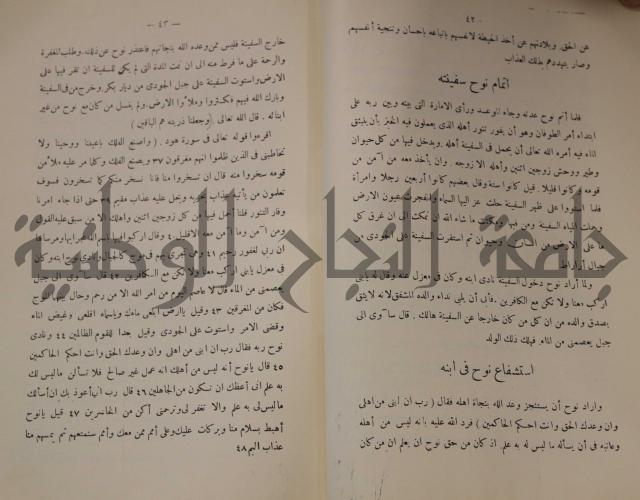 ٤٢
عن الحق. وبلادتهم عن أخذ الحيطة لانفسهم باتباعه باحسان وتنجية أنفسهم
وصار يتهددهم بذلك العذاب
اتمام نوح سفينته
فلما أتم نوح عدته وجاء الموعد ورأى الامارة التى بينه وبين ربه على
ابتداء أمر الطوفان وهو أن يفور تنور أهله الذى يعملون فيه الخبز بأن ينبثق
الماء فيه أمره الله تعالى أن يحمل فى السفينة أهله. ويدخل فيها من كل حيوان
وطير ووحش زوجين اثنين وأهله الا زوجه. وان يأخذ معه من آمن من
قومه وكانوا قليلا. قيل كانوا ستة وقال بعضهم كانوا أربعين رجلا وامرأة
فلما استووا على ظهر السفينة حلت عز اليها السماء وانفجرت عيون الارض
وحملت المياه السفينة ومن فيها ومكثت ما شاء الله ان تمكث الى ان غرق كل
ما على الارض من انسان وحيوان ثم استقرت السفينة على الجودى من
جبال أراراط
ولما أراد نوح دخول السفينة نادى ابنه وكان فى معزل عنه وقال له يابنى
اركب معنا ولا تكن مع الكافرين. فأبى أن يلبى نداء والده المشفق لانه لا يثق
بصدق والده من ان كل من كان خارجا عن السفينة هالك. قال سآوى الى
جبل يعصمنى من الماء. فهلك ذلك الولد
استشفاع نوح فى ابنه
واراد نوح أن يستنجز وعد الله بنجاة اهله فقال (رب ان ابنى من اهلى
وان وعدك الحق وانت احكم الحاكمين) فرد الله عليه بانه ليس من أهله
وعاتبه فى أن يسأله ما ليس له به علم اذ كان من حق نوح ان يعلم ان من كان
— ٤٣ —
خارج السفينة فليس ممن وعده الله بنجاتهم فاعتذر نوح عن ذلك. وطلب المغفرة
والرحمة على ما فرط منه الى ان تمت المدة التى لم يكن للسفينة ان تقر فيها على
الارض واستوت السفينة على جبل الجودى من ديار بكر وخرج من فى السفينة
وبارك الله فيهم فكثروا وملأوا الارض. ولم ينسل من كان مع نوح من غير
ابنائه. قال الله تعالى (وجعلنا ذريته هم الباقين)
اقرءوا قوله تعالى فى سورة هود. (واصنع الفلك باعيننا ووحينا ولا
تخاطبنى فى الذين ظلموا انهم مغرقون ٣٧ ويصنع الفلك وكلما مر عليه ملأ من
قومه سخروا منه قال ان تسخروا منا فانا نسخر منكم كما تسخرون فسوف
تعلمون من يأتيه عذاب يخزيه ويحل عليه عذاب مقيم ٣٩ حتى اذا جاء امرنا
وفار التنور قلنا أحمل فيها من كل زوجين اثنين واهلك الا من سبق عليه القول
ومن آمن وما آمن معه الا قليل ٤٠ وقال اركبوا فيها بسم الله مجراها ومرساها
ان ربى لغفور رحيم ٤١ وهى تجرى بهم فى موج كالجبال ونادى نوح ابنه وكان
فى معزل يابنى اركب معنا ولا تكن مع الكافرين ٤٢ قال سآوى الى جبل
يعصمنى من الماء قال لا عاصم اليوم من امر الله الا من رحم وحال بينهما الموج
فكان من المغرقين ٤٣ وقيل يا ارض ابلعى ماءك وياسماء اقلعى وغيض الماء
وقضى الامر واستوت على الجودى وقيل بعدا للقوم الظالمين ٤٤ ونادى
نوح ربه فقال رب ان ابنى من اهلى وان وعدك الحق وانت احكم الحاكمين
٤٥ قال يانوح أنه ليس من أهلك انه عمل غير صالح فلا تسألن ما ليس لك
به علم انى أعظك ان تكون من الجاهلين ٤٦ قال رب انى أعوذ بك ان أسألك
ما ليس لى به علم والا تغفر لى وترحمنى أكن من الخاسرين ٤٧ قيل يانوح
أهبط بسلام منا وبركات عليك وعلى أمم ممن معك وأمم سنمتعهم ثم يمسهم منا
عذاب اليم ٤٨
جامعة النجاح الوطنية